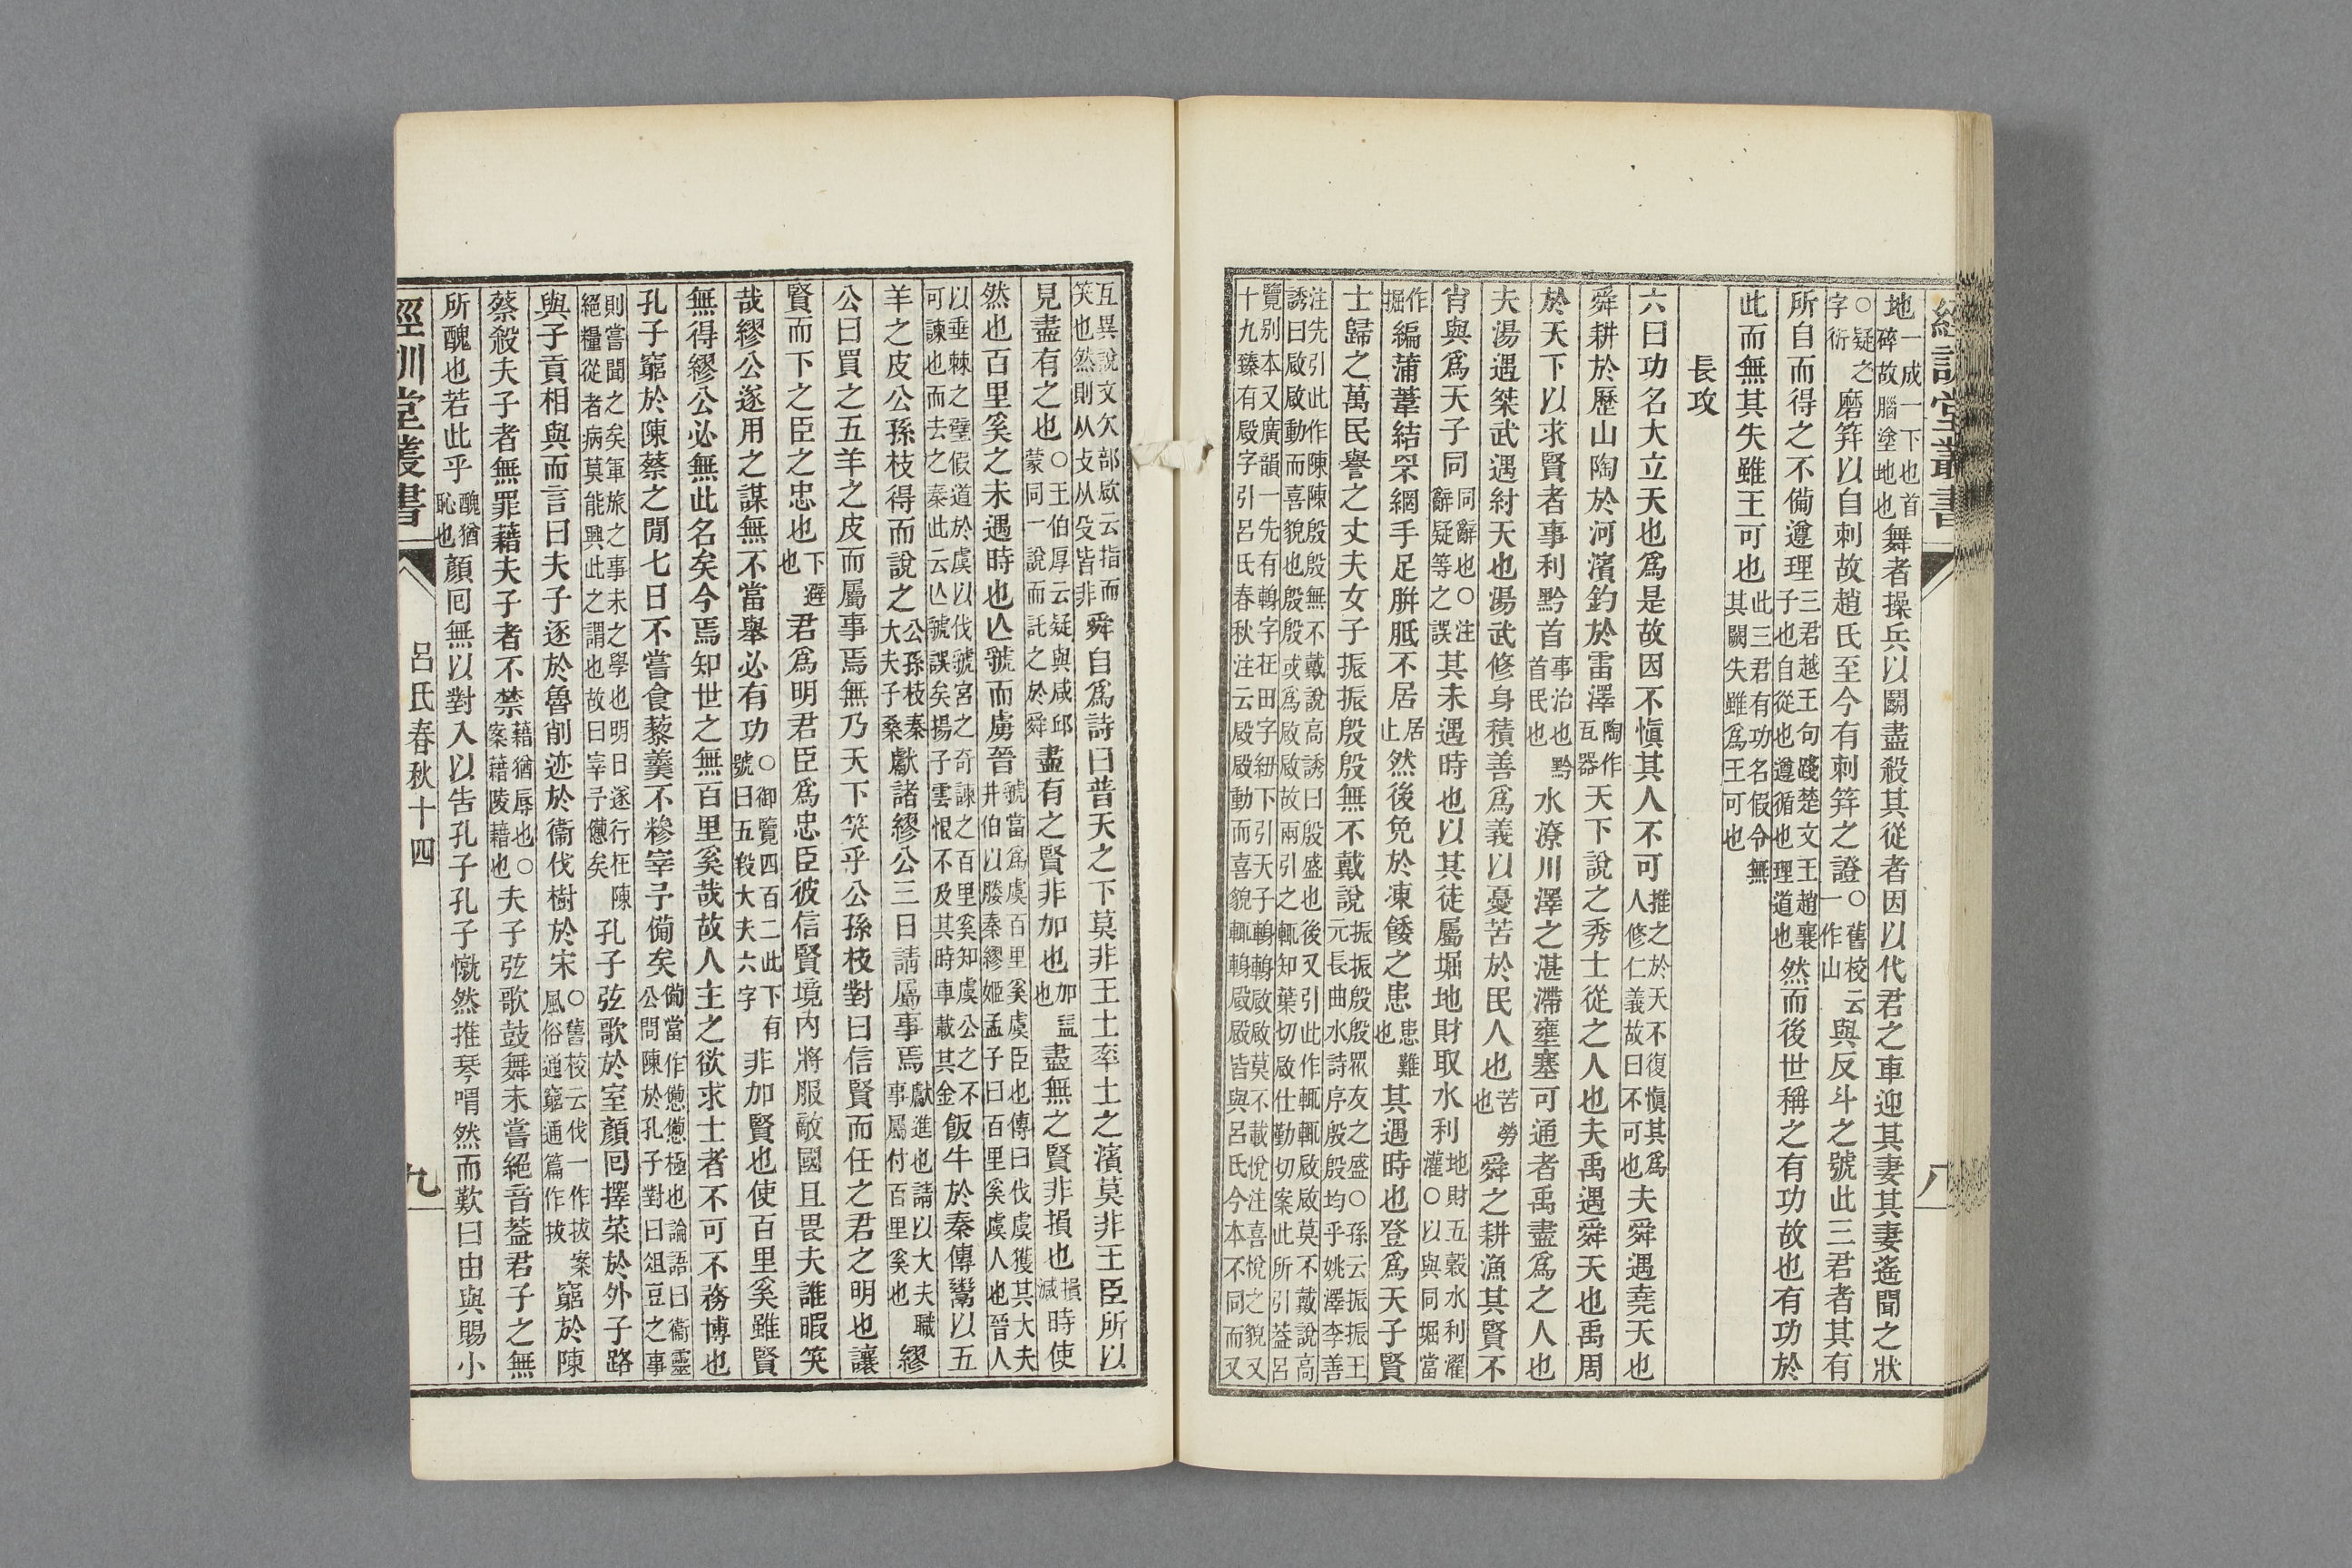 經訓堂叢書
八
地一成一下也首碎故腦塗地也舞者操兵以鬬盡殺其從者因以代君之車迎其妻其妻遙聞之狀
○疑之字衍磨笄以自刺故趙氏至今有刺笄之證○舊校云一作山與反斗之號此三君者其有
所自而得之不備遵理三君越王句踐楚文王趙襄子也自從也遵循也理道也然而後世稱之有功故也有功於
此而無其失雖王可也此三君有功名假令無其闕失雖爲王可也
長攻
六曰功名大立天也爲是故因不愼其人不可推之於天不復愼其爲人修仁義故曰不可也夫舜遇堯天也
舜耕於歷山陶於河濱釣於雷澤陶作瓦器天下說之秀士從之人也夫禹遇舜天也禹周
於天下以求賢者事利黔首事治也黔首民也水潦川澤之湛滯壅塞可通者禹盡爲之人也
夫湯遇桀武遇紂天也湯武修身積善爲義以憂苦於民人也苦勞也舜之耕漁其賢不
肖與爲天子同同辭也○注辭疑等之誤其未遇時也以其徒屬堀地財取水利地財五穀水利濯灌○以與同堀當
作掘編蒲葦結罘網手足胼胝不居居止然後免於凍餒之患患難也其遇時也登爲天子賢
士歸之萬民譽之丈夫女子振振殷殷無不戴說振振殷殷眾友之盛○孫云振振王元長曲水詩序殷殷均乎姚澤李善
注先引此作陳陳殷殷無不戴說高誘曰殷盛也後又引此作輒輒啟啟莫不戴說高誘曰啟啟動而喜貌也殷殷或爲啟啟故兩引之輒知葉切啟仕勤切案此所引葢呂
覽別本又廣韻一先有䡘字在田字紐下引天子䡘䡘啟啟莫不載悅注喜悅之貌又十九臻有㱿字引呂氏春秋注云㱿㱿動而喜貌輒䡘㱿㱿皆與呂氏今本不同而又
互異說文欠部㰟云指而笑也然則从攴从殳皆非舜自爲詩曰普天之下莫非王土率土之濱莫非王臣所以
見盡有之也○王伯厚云疑與咸邱蒙同一說而託之於舜盡有之賢非加也加益也盡無之賢非損也損減時使
然也百里奚之未遇時也亾虢而虜晉虢當爲虞百里奚虞臣也傳曰伐虞獲其大夫井伯以媵秦繆姬孟子曰百里奚虞人也晉人
以垂棘之璧假道於虞以伐虢宮之奇諫之百里奚知虞公之不可諫也而去之秦此云亾虢誤矣揚子雲恨不及其時車載其金飯牛於秦傳鬻以五
羊之皮公孫枝得而說之公孫枝秦大夫子桑獻諸繆公三日請屬事焉獻進也請以大夫職事屬付百里奚也繆
公曰買之五羊之皮而屬事焉無乃天下笑乎公孫枝對曰信賢而任之君之明也讓
賢而下之臣之忠也下避也君爲明君臣爲忠臣彼信賢境內將服敵國且畏夫誰暇笑
哉繆公遂用之謀無不當舉必有功○御覽四百二此下有號曰五羖大夫六字非加賢也使百里奚雖賢
無得繆公必無此名矣今焉知世之無百里奚哉故人主之欲求士者不可不務博也
孔子窮於陳蔡之閒七日不嘗食藜羹不糝宰予備矣備當作憊憊極也論語曰衞靈公問陳於孔子對曰俎豆之事
則嘗聞之矣軍旅之事未之學也明日遂行在陳絕糧從者病莫能興此之謂也故曰宰予憊矣孔子弦歌於室顏回擇菜於外子路
與子貢相與而言曰夫子逐於魯削迹於衞伐樹於宋○舊校云伐一作拔案風俗通窮通篇作拔窮於陳
蔡殺夫子者無罪藉夫子者不禁藉猶辱也○案藉陵藉也夫子弦歌鼓舞未嘗絕音葢君子之無
所醜也若此乎醜猶恥也顏回無以對入以告孔子孔子憱然推琴喟然而歎曰由與賜小
經訓堂叢書
呂氏春秋十四
九